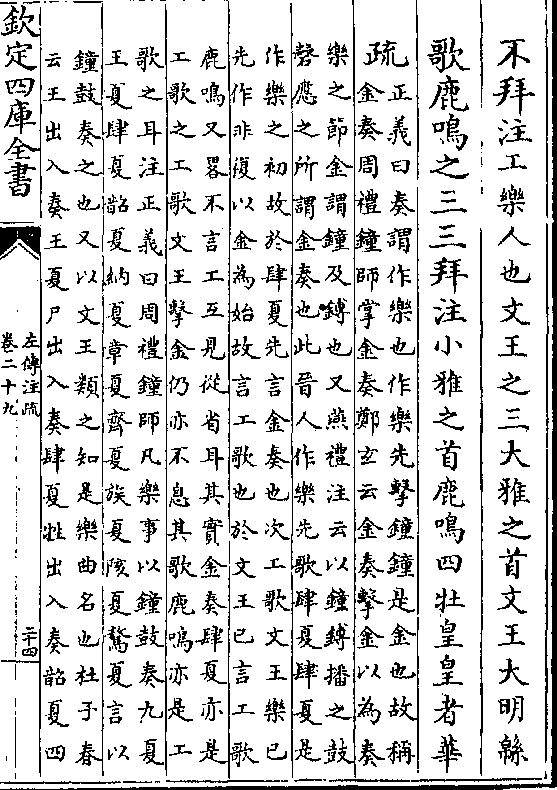 不拜注工樂人也文王之三大雅之首文王大明緜
歌鹿鳴之三三拜注小雅之首鹿鳴四牡皇皇者華
疏
正義曰奏謂作樂也作樂先擊鐘鐘是金也故稱
金奏周禮鐘師掌金奏鄭玄云金奏擊金以為奏
樂之節金謂鐘及鎛也又燕禮注云以鐘鎛播之鼓
磬應之所謂金奏也此晉人作樂先歌肆夏肆夏是
作樂之初故於肆夏先言金奏也次工歌文王樂已
先作非復以金為始故言工歌也於文王已言工歌
鹿鳴又畧不言工互見從省耳其實金奏肆夏亦是
工歌之工歌文王擊金仍亦不息其歌鹿鳴亦是工
歌之耳注正義曰周禮鐘師凡樂事以鐘鼓奏九夏
王夏肆夏韶夏納夏章夏齊夏族夏陔夏驁夏言以
鐘鼓奏之也又以文王類之知是樂曲名也杜子春
云王出入奏王夏尸出入奏肆夏牲出入奏韶夏四
欽定四庫全書
左傳注疏
卷二十九
二十四